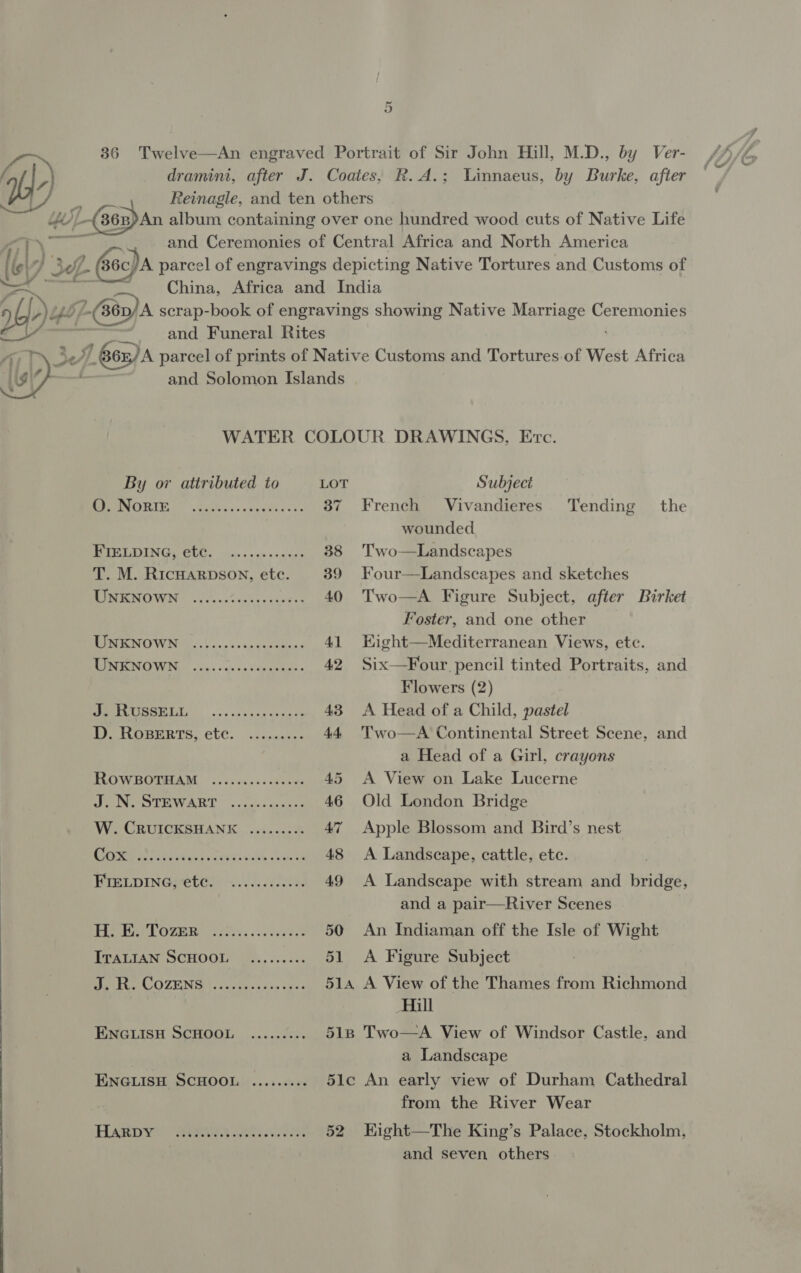 5
36 Twelve—An engraved Portrait of Sir John Hill, M.D., by Ver-
dramini, after J. Coates, R.A.; Linnaeus, by Burke, after
Reinagle, and ten others
36B An album containing over one hundred wood cuts of Native Life
and Ceremonies of Central Africa and North America
36C A parcel of engravings depicting Native Tortures and Customs of
China, Africa and India
36D A scrap-book of engravings showing Native Marriage Ceremonies
and Funeral Rites
36E A parcel of prints of Native Customs and Tortures of West Africa
and Solomon Islands
WATER COLOUR DRAWINGS, ETC.
By or attributed to LOT Subject
O. NORIE .................... 37 French Vivandieres Tending the
wounded
FIELDING, etc. ............ 38 Two—Landscapes
T. M. RICHARDSON, etc. 39 Four—Landscapes and sketches
UNKNOWN .................. 40 Two—A Figure Subject, after Birket
Foster, and one other
UNKNOWN .................. 41 Eight—Mediterranean Views, etc.
UNKNOWN .................. 42 Six—Four pencil tinted Portraits, and
Flowers (2)
J. RUSSELL ............... 43 A Head of a Child, pastel
D. ROBERTS, etc. ......... 44 Two—A Continental Street Scene, and
a Head of a Girl, crayons
ROWBOTHAM ............... 45 A View on Lake Lucerne
J. N. STEWART ............ 46 Old London Bridge
W. CRUICKSHANK ......... 47 Apple Blossom and Bird's nest
COX ........................ 48 A Landscape, cattle, etc.
FIELDING, etc. ............ 49 A Landscape with stream and bridge,
and a pair—River Scenes
H. E. TOZER ............... 50 An Indiaman off the Isle of Wight
ITALIAN SCHOOL ......... 51 A Figure Subject
J. R. COZENS ............... 51A A View of the Thames from Richmond
Hill
ENGLISH SCHOOL ......... 51B Two—A View of Windsor Castle, and
a Landscape
ENGLISH SCHOOL ......... 51C An early view of Durham Cathedral
from the River Wear
HARDY ..................... 52 Eight—The King's Palace, Stockholm,
and seven others